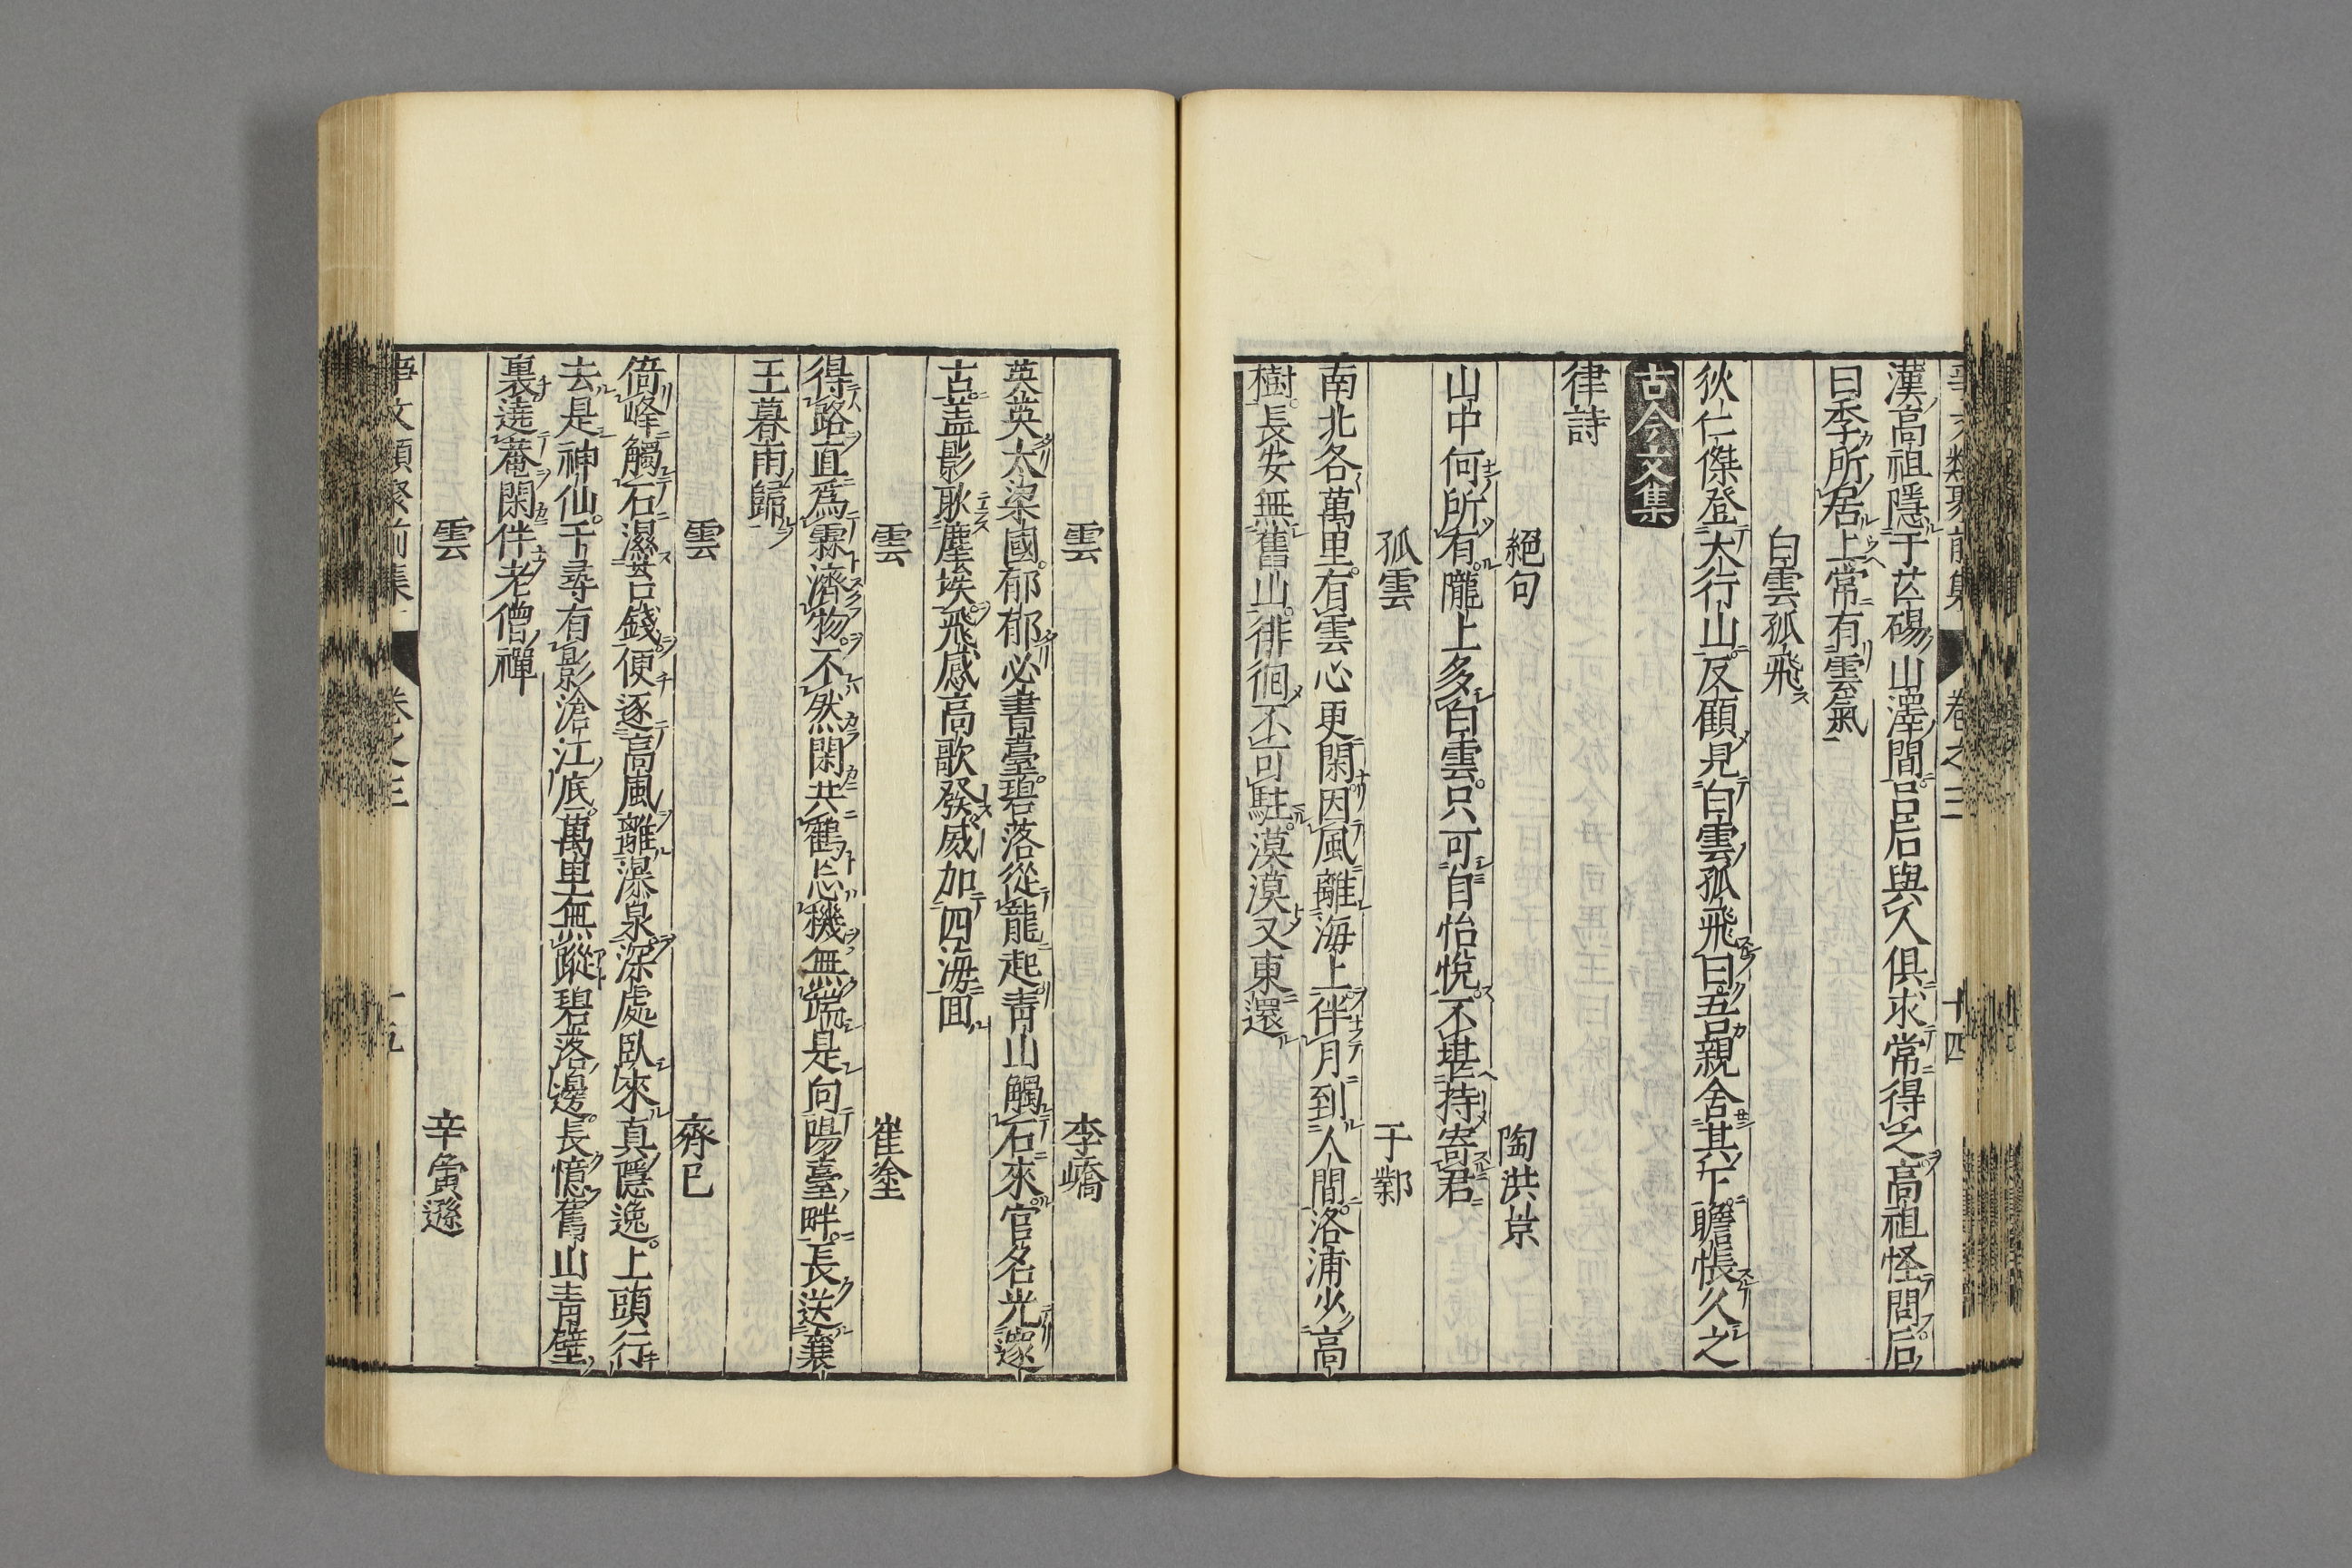 漢高祖隱于芒碭山澤間呂后與人俱求常得之高祖怪問后
曰季所居上常有雲氣
白雲孤飛
狄仁傑登太行山反顧見白雲孤飛曰吾親舍其下瞻悵久之
古今文集
律詩
絕句 陶洪景
山中何所有隴上多白雲只可自怡悅不堪持寄君
孤雲 于鄴
南北各萬里有雲心更閑因風離海上伴月到人間洛浦少高
樹長安無舊山徘徊不可駐漠漠又東還
雲 李嶠
英英大梁國郁郁必書臺碧落從龍起青山觸石來官名光邃
古蓋影耿塵埃飛感高歌發威加四海回
雲 崔塗
得路直為霖濟物不然閑共鶴忘機無端是向陽臺畔長送襄
王暮雨歸
雲 齊已
倚峰觸石濕苔錢便逐高風離瀑泉深處臥來真隱逸上頭行
去是神仙千尋有影滄江底萬里無蹤碧落邊長憶舊山青壁
裏遶菴閑伴老僧禪
雲 辛夤遜
卷之三